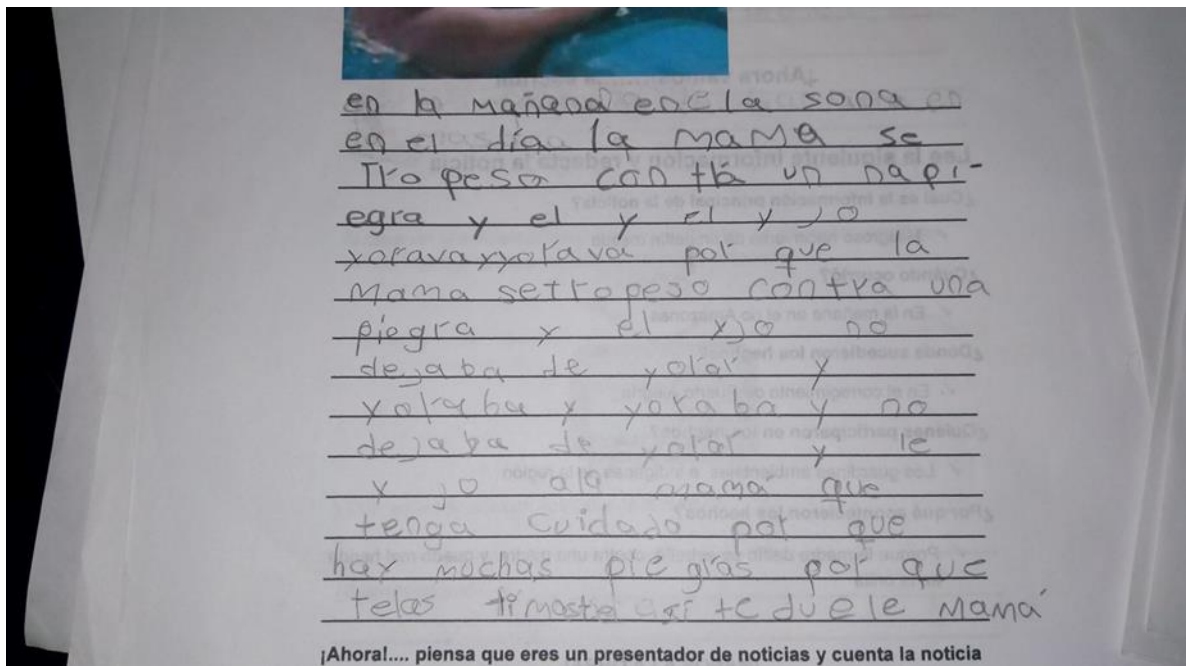 en la mañana en e la sona en
en el día la mama se
Tropesa con tra un napi-
egra y el y el y jo
yoravayyorava por que la
mama setropeso contra una
piegra y el yjo no
dejaba de yorar y
yoraba y yoraba y no
dejaba de yorar y le
y jo ala mamá que
tenga cuidado por que
hay muchas piegras por que
telas timaste así te duele mamá
¡Ahora!.... piensa que eres un presentador de noticias y cuenta la noticia